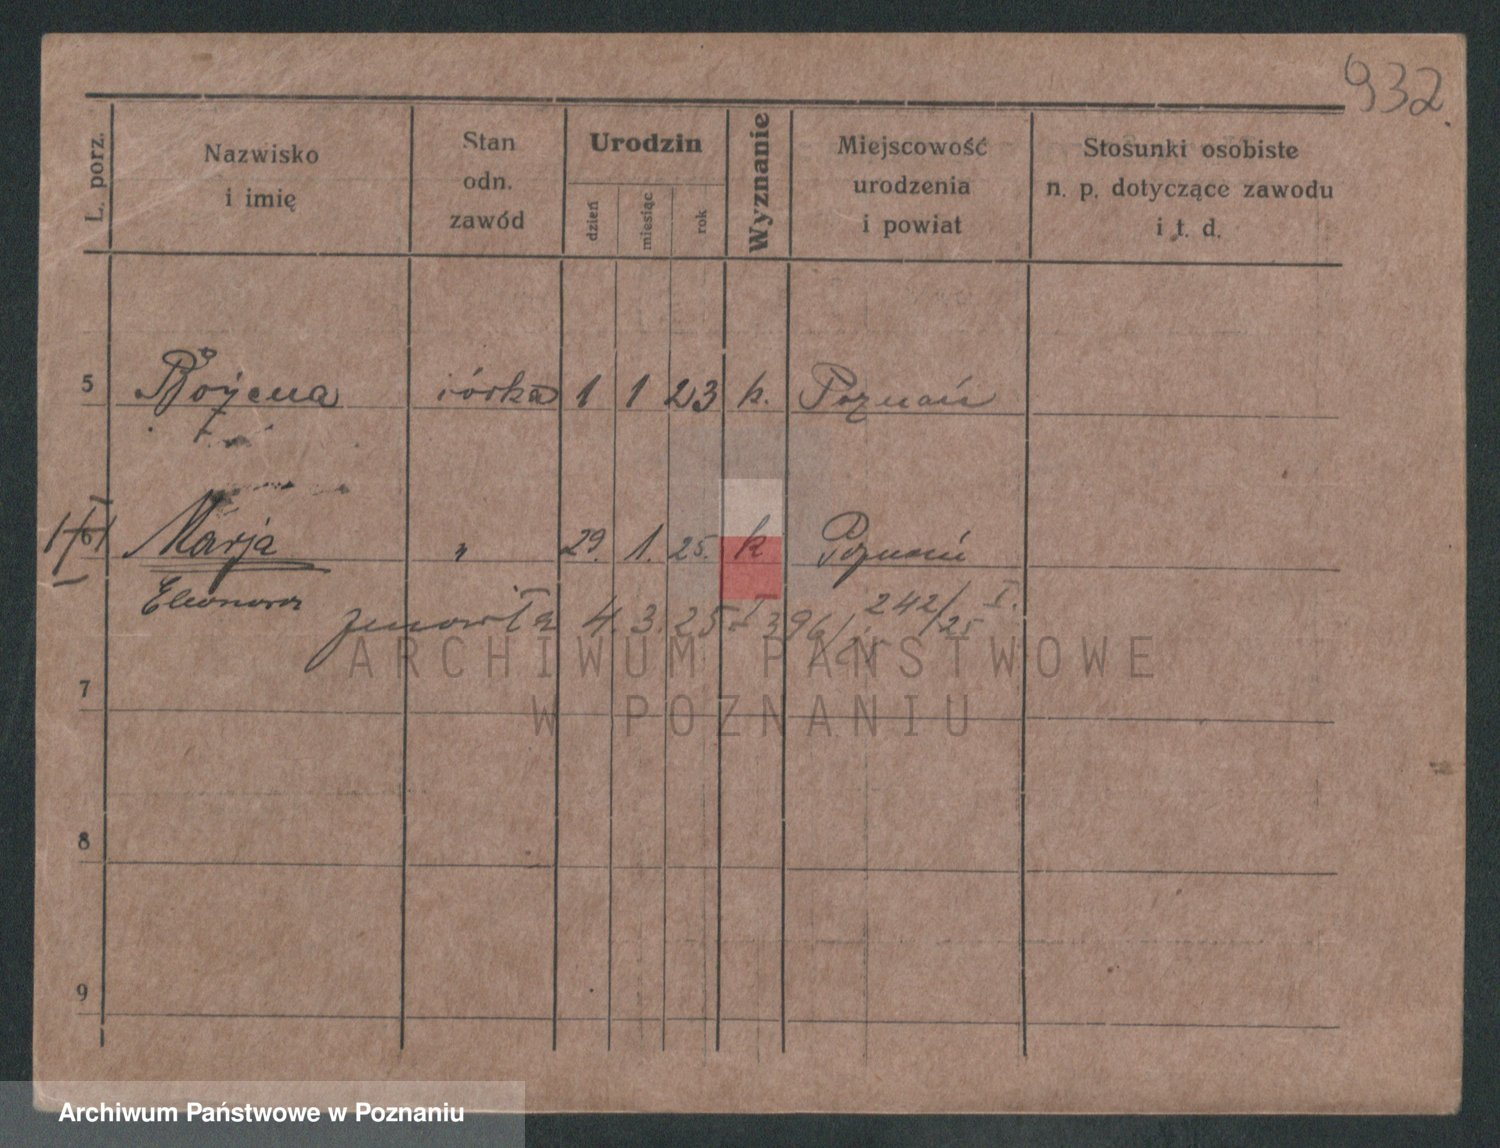 932.
L. porz.
Nazwisko
i imię
Stan
odn.
zawód
Urodzin
dzień
miesiąc
rok
Wyznanie
Miejscowość
urodzenia
i powiat
Stosunki osobiste
n. p. dotyczące zawodu
i t. d.
5 Bożena córka 1 1 23 k. Poznań
6 Marja " 29. 1. 25. k Poznań
Eleonora
zmarła 4. 3. 25 I 396/25 242/25 I.
7
8
9
ARCHIWUM PAŃSTWOWE
W POZNANIU
Archiwum Państwowe w Poznaniu